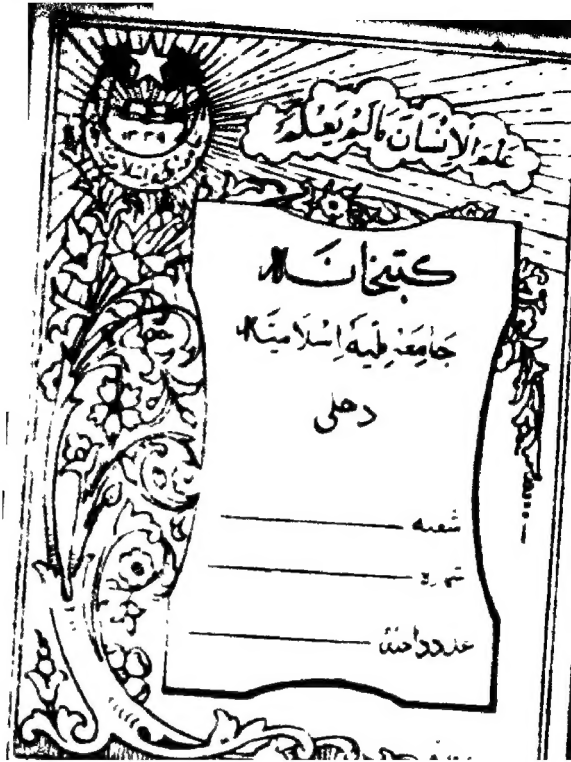 عَلَّمَ الْاِنْسَانَ مَالَمْ يَعْلَمْ
۱۳۳۹
کتبخانہ
جامعہ ملیہ اسلامیہ
دھلی
شعبہ
عدد داخلہ